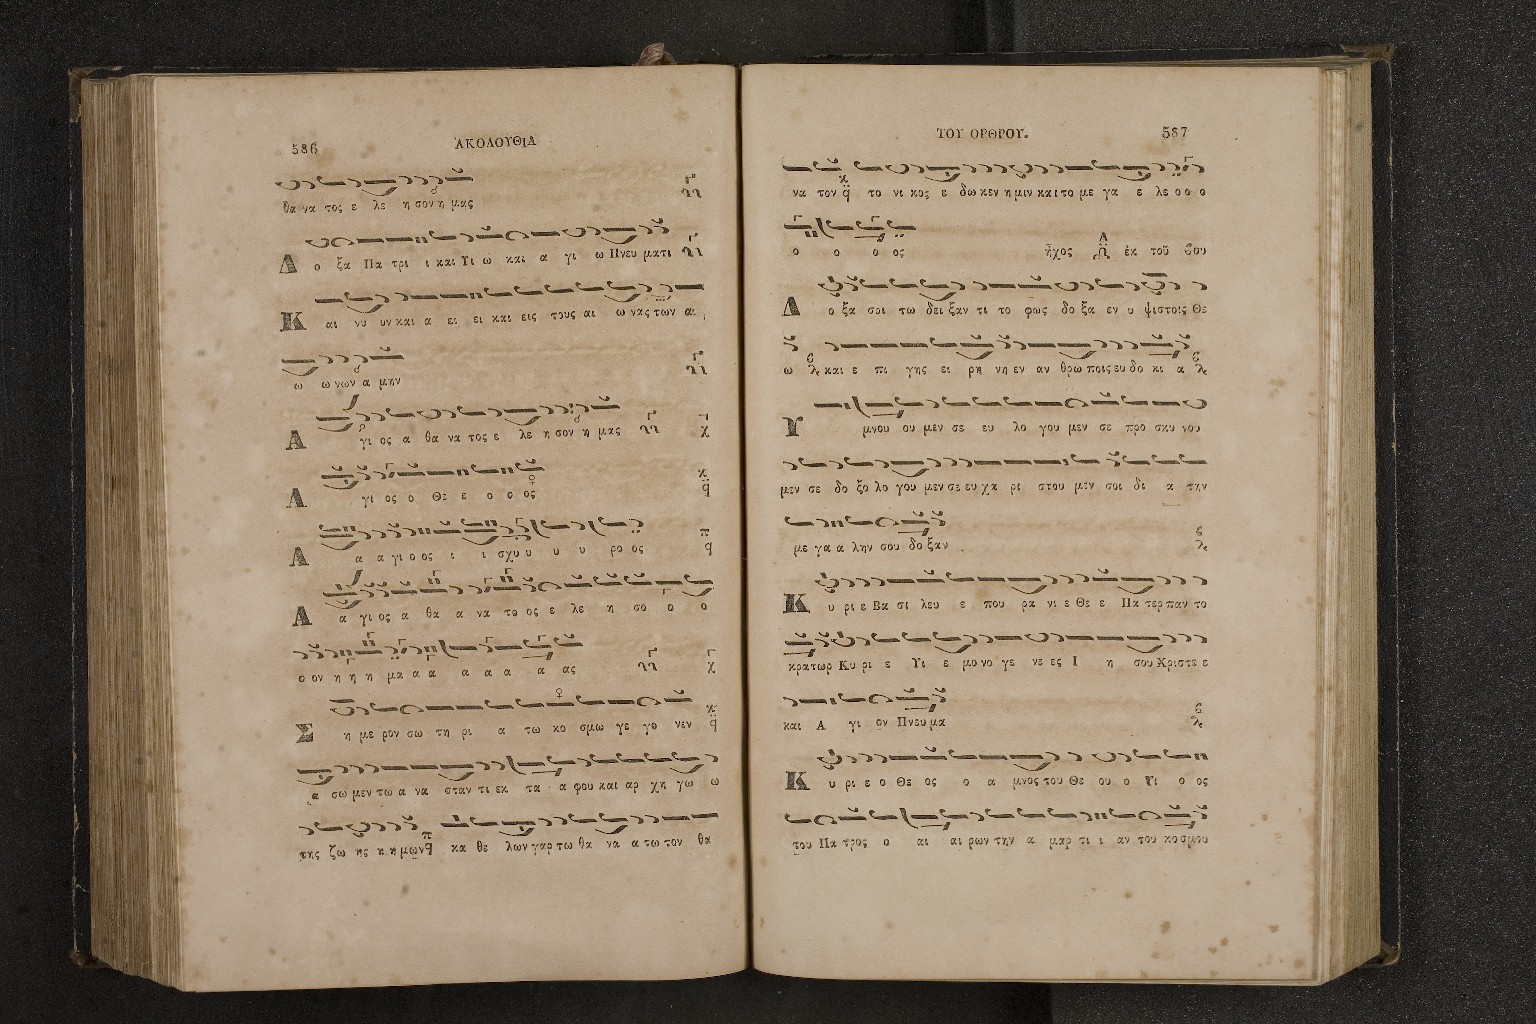 586
ΑΚΟΛΟΥΘΙΑ
θα να τος ε λε η σον η μας
Δ ο ξα Πα τρι ι και Υι ω και α γι ω Πνευ ματι
Κ αι νυ υν και α ει ει και εις τους αι ω νας των αι
ω ω νων α μην
Α γι ος α θα να τος ε λε η σον η μας
Α γι ος ο Θε ε ο ο ος
Α α α γι ο ος ι ι σχυ υ υ υ ρο ος
Α α γι ος α θα α να το ος ε λε η σο ο ο
ο ον η η η μα α α α α α α ας
Σ η με ρον σω τη ρι α τω κο σμω γε γο νεν
α σω μεν τω α να σταν τι εκ τα α φου και αρ χη γω ω
της ζω ης η η μων κα θε λων γαρ τω θα να α τω τον θα
ΤΟΥ ΟΡΘΡΟΥ.
587
να τον το νι κος ε δω κεν η μιν και το με γα ε λε ο ο ο
ο ο ο ος ἦχος ἐκ τοῦ βου
Δ ο ξα σοι τω δει ξαν τι το φως δο ξα εν υ ψιστοις Θε
ω και ε πι γης ει ρη νη εν αν θρω ποις ευ δο κι α
Υ μνου ου μεν σε ευ λο γου μεν σε προ σκυ νου
μεν σε δο ξο λο γου μεν σε ευ χα ρι στου μεν σοι δι α την
με γα α λην σου δο ξαν
Κ υ ρι ε Βα σι λευ ε που ρα νι ε Θε ε Πα τερ παν το
κρατωρ Κυ ρι ε Υι ε μο νο γε νε ες Ι η σου Χριστε ε
και Α γι ον Πνευ μα
Κ υ ρι ε ο Θε ος ο α μνος του Θε ου ο Υι ο ος
του Πα τρος ο αι αι ρων την α μαρ τι ι αν του κο σμου